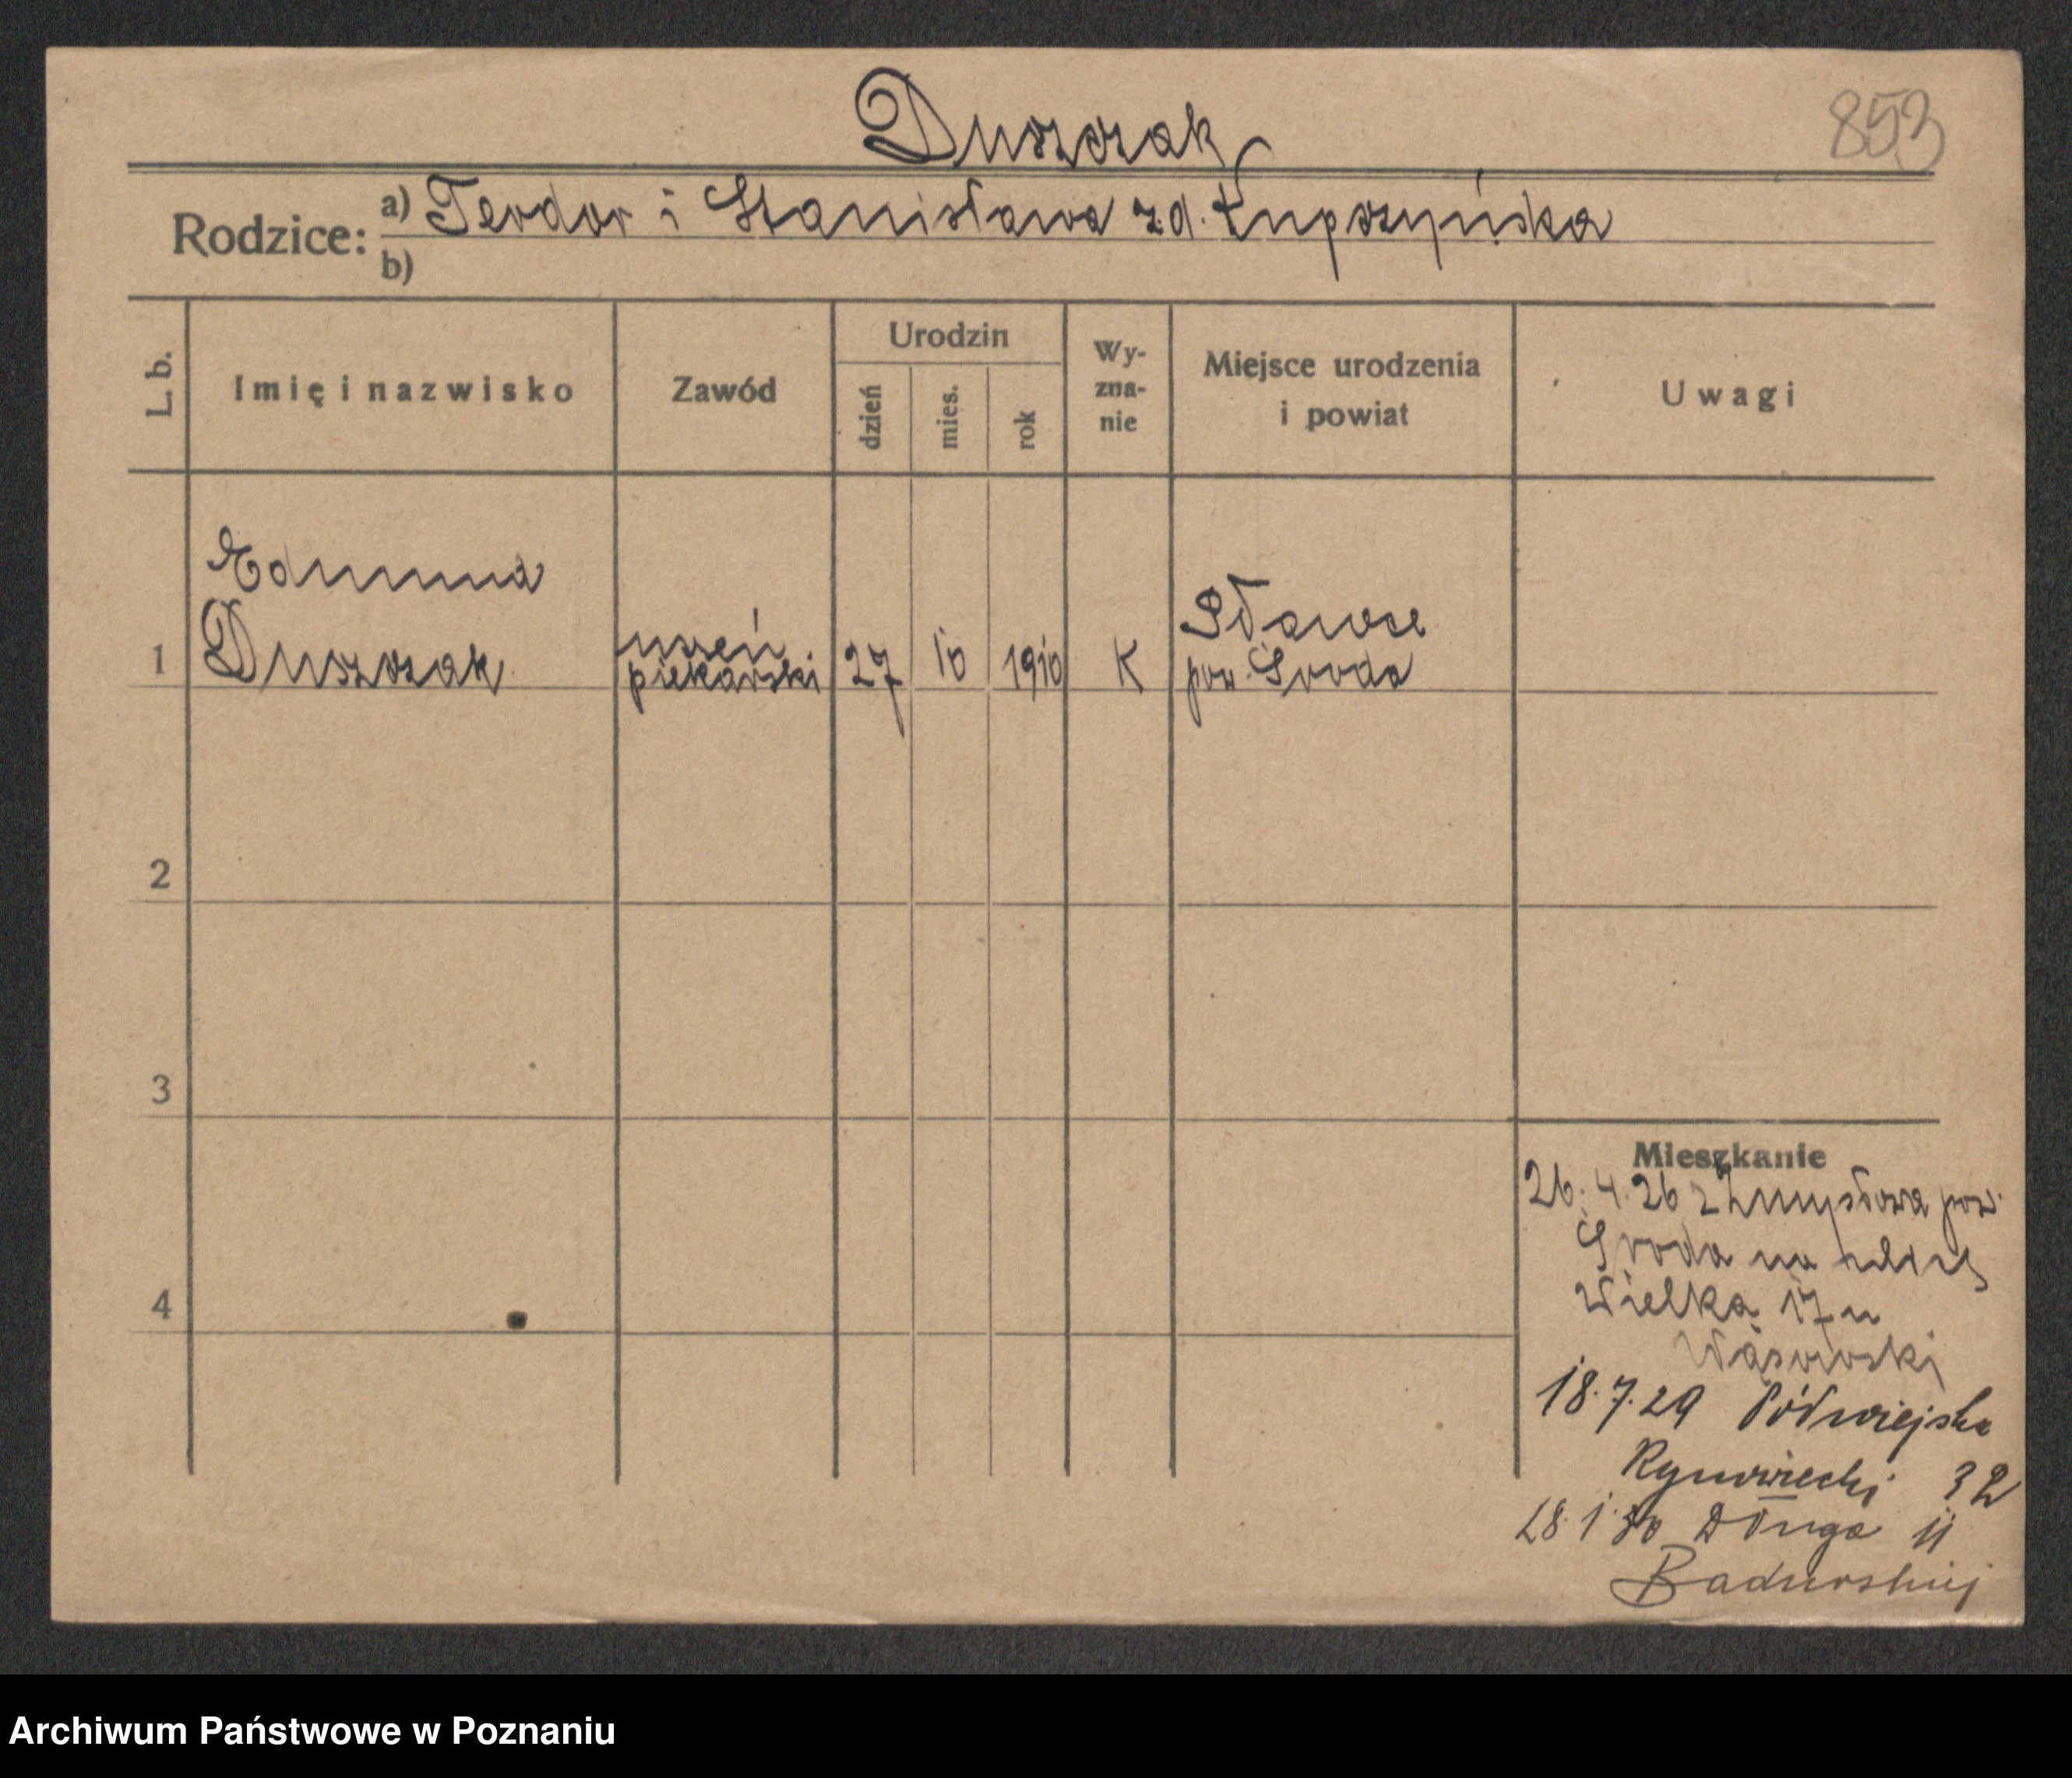 Duszczak
853
Rodzice: a) Teodor i Stanisława z.d. Łupczyńska
b)
L. b.
Imię i nazwisko
Zawód
Urodzin
dzień
mies.
rok
Wy-
zna-
nie
Miejsce urodzenia
i powiat
Uwagi
Edmund
1 Duszczak
uczeń
piekarski
27 10 1910 K
Pławce
pow. Środa
2
3
4
Mieszkanie
26.4.26 z Zmysłowa pow.
Środa na ulicę
Wielka 17 u
Wąsowski
18.7.29 Półwiejska
32
28.1.30 Długa 11
Badurskiej
Archiwum Państwowe w Poznaniu